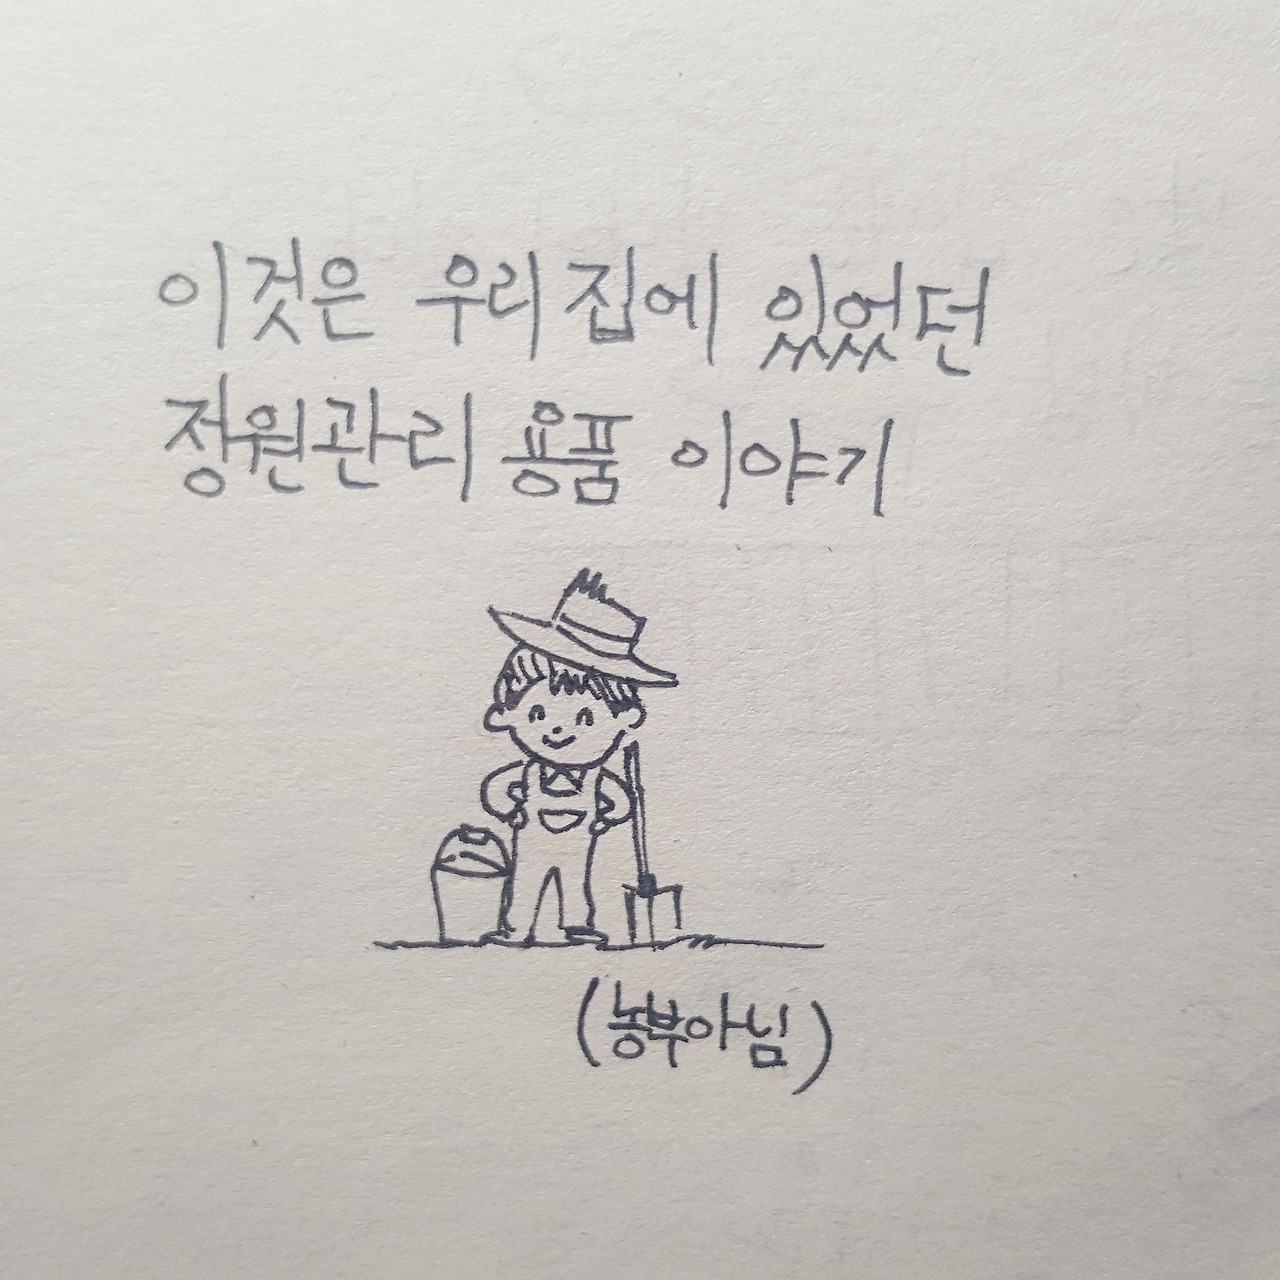 이것은 우리집에 있었던
정원관리 용품 이야기
(농부아님)